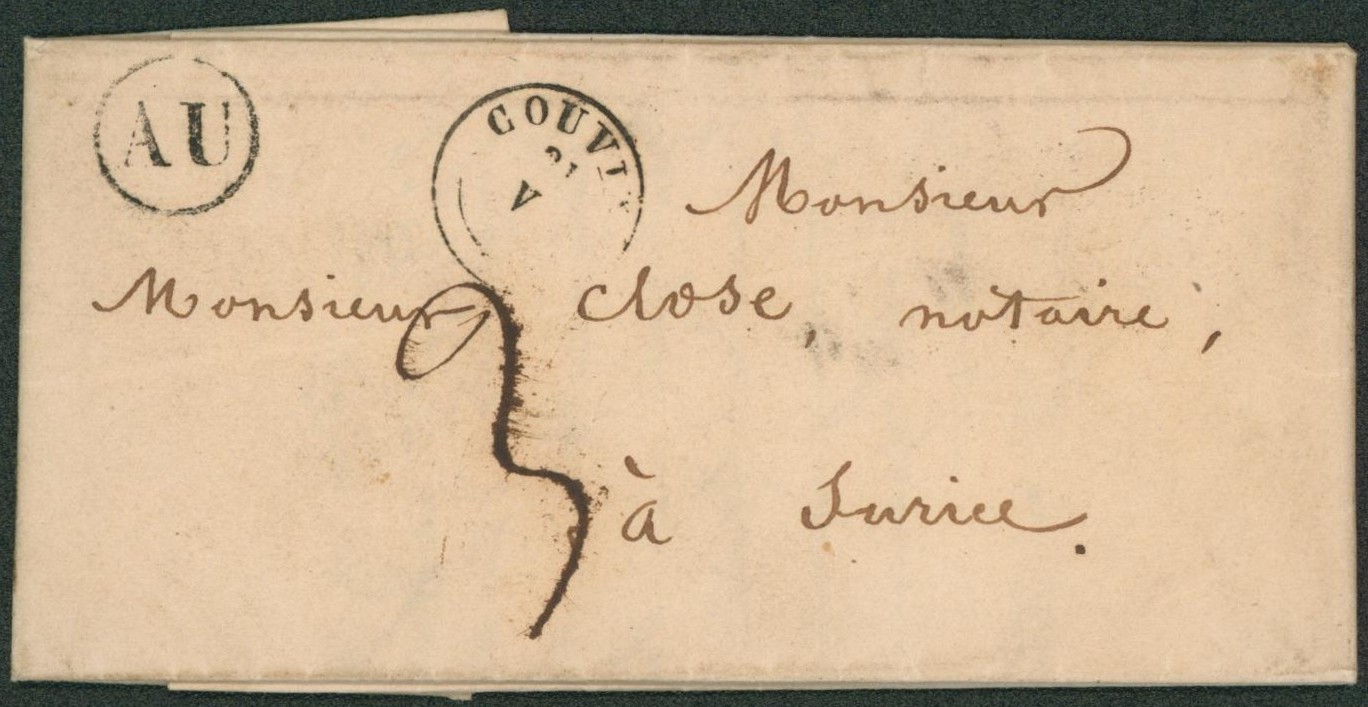 AU
GOUVI
21
V
Monsieur
Monsieur close, notaire,
3
à Surice.